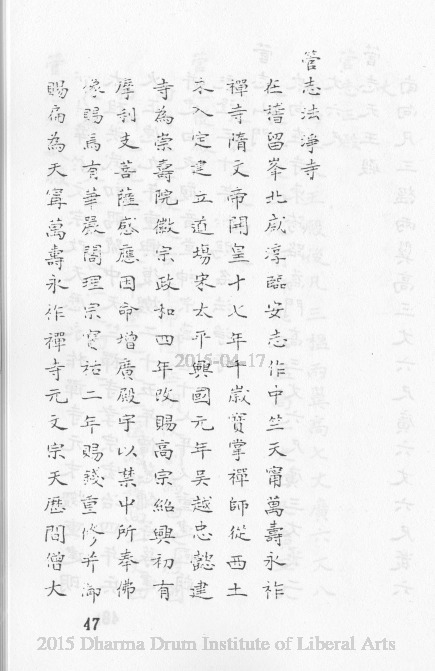 管志法淨寺
在稽留峯北咸淳臨安志作中竺天甯萬壽永祚
禪寺隋文帝開皇十七年千歲寶掌禪師從西土
來入定建立道場宋太平興國元年吳越忠懿建
寺為崇壽院徽宗政和四年改賜高宗紹興初有
摩利支菩薩感應因命增廣殿宇以禁中所奉佛
像賜焉有華嚴閣理宗寶祐二年賜錢重修并御
賜扁為天甯萬壽永祚禪寺元文宗天歷間僧大
2015-04-17
47
2015 Dharma Drum Institute of Liberal Arts